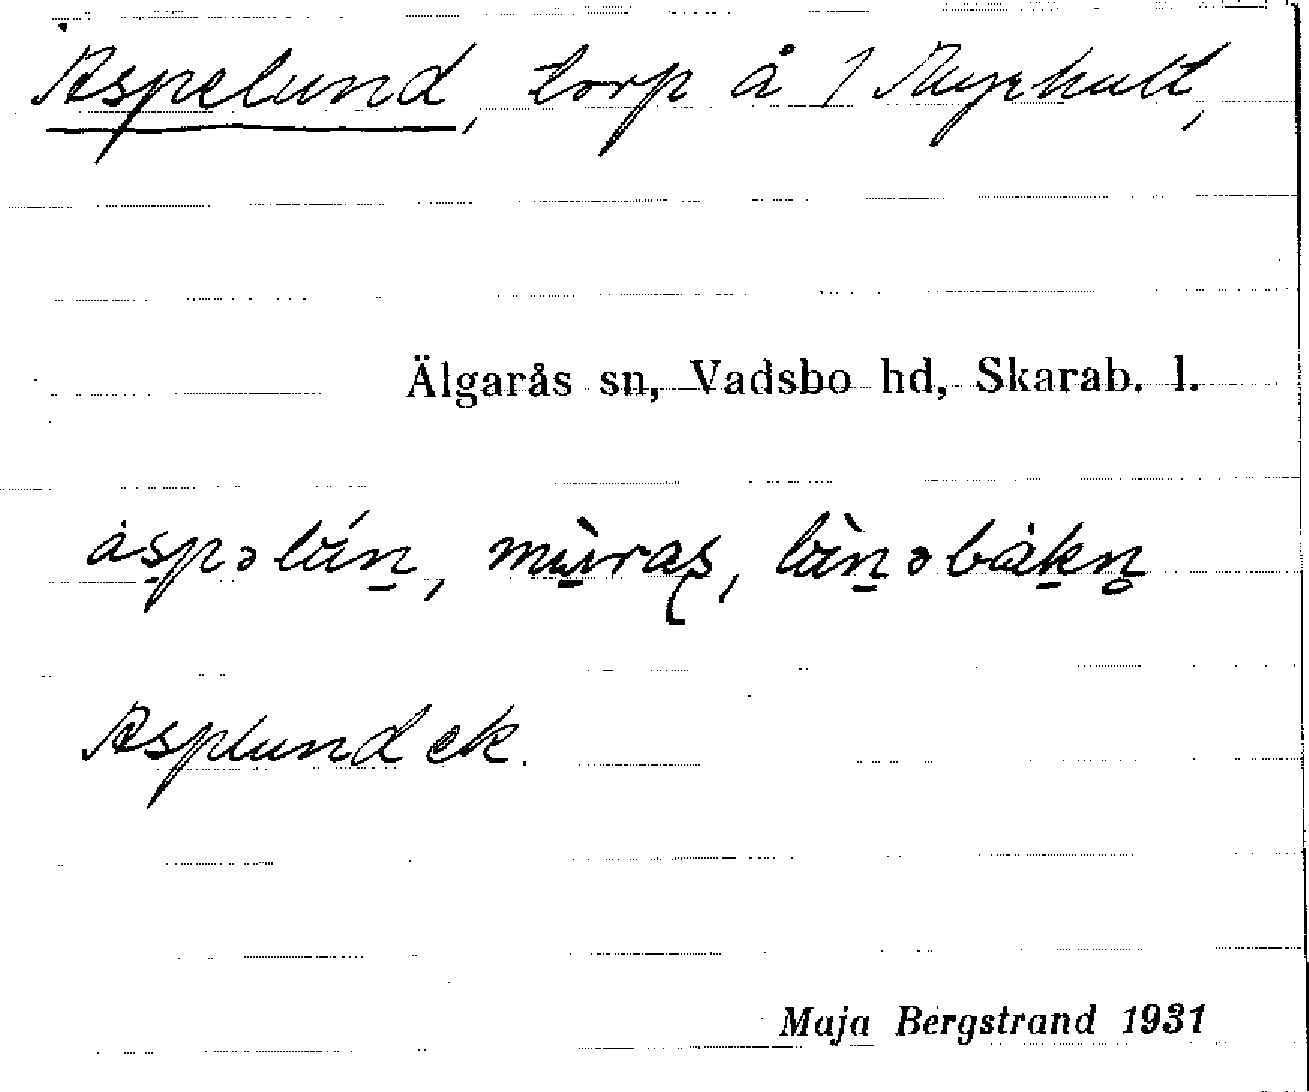 Aspelund, torp å 1 Myrhult,
Älgarås sn, Vadsbo hd, Skarab. l.
àspəlún̠, mùras, lùn̠əbàkn̥
Asplund ek.
Maja Bergstrand 1931